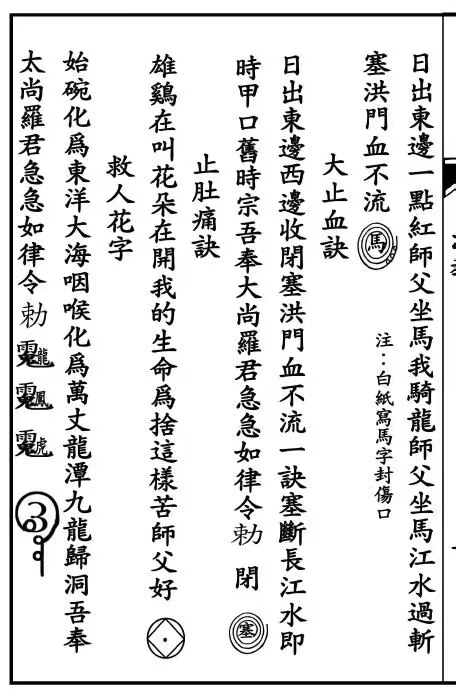 日出東邊一點紅師父坐馬我騎龍師父坐馬江水過斬
塞洪門血不流
馬
注：白紙寫馬字封傷口
大止血訣
日出東邊西邊收閉塞洪門血不流一訣塞斷長江水即
時甲口舊時宗吾奉大尚羅君急急如律令勅 閉
塞
止肚痛訣
雄鷄在叫花朵在開我的生命爲捨這樣苦師父好
救人花字
始碗化爲東洋大海咽喉化爲萬丈龍潭九龍歸洞吾奉
太尚羅君急急如律令勅